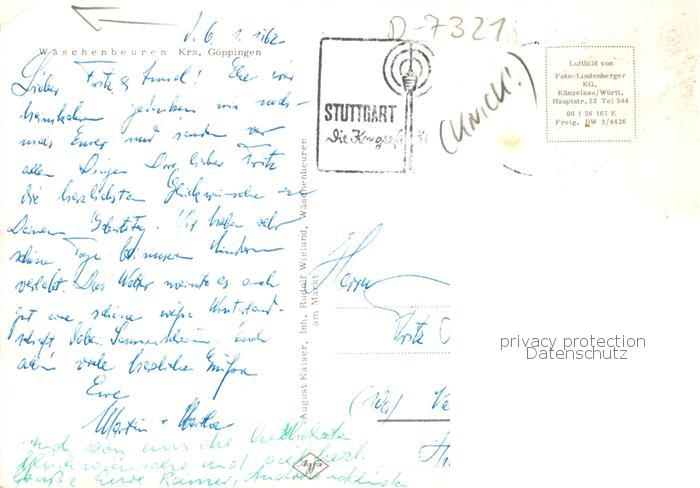 D-7321
d. 6. 1. 1962
Wäschenbeuren Krs. Göppingen
Lieber Fritz, Ehe wir
heimkehren gedenken wir noch-
mals Eurer und senden vor
allen Dingen Dir, lieber Fritz
die herzlichsten Glückwünsche zu
Deinem Geburtstag. Wir haben sehr
schöne Tage bei unseren Kindern
verlebt. Das Wetter meinte es auch
gut eine schöne weiße Winterland-
schaft dabei Sonnenschein. Euch
allen viele herzlichen Grüße
Eure
Martin + Martha
Auch von uns die herzlichsten
Glückwünsche und viele herzl.
Grüße Eure Rainer,
STUTTGART
Die Kongreß
(UNICH!)
Luftbild von
Foto-Lindenberger
KG.
Künzelsau/Württ.
Hauptstr. 32 Tel 544
08 1 36 167 E
Freig. BW 3/4426
August Kaiser, Inh. Rudolf Wieland, Wäschenbeuren
am Markt
Agfa
Herrn
Fritz
privacy protection
Datenschutz